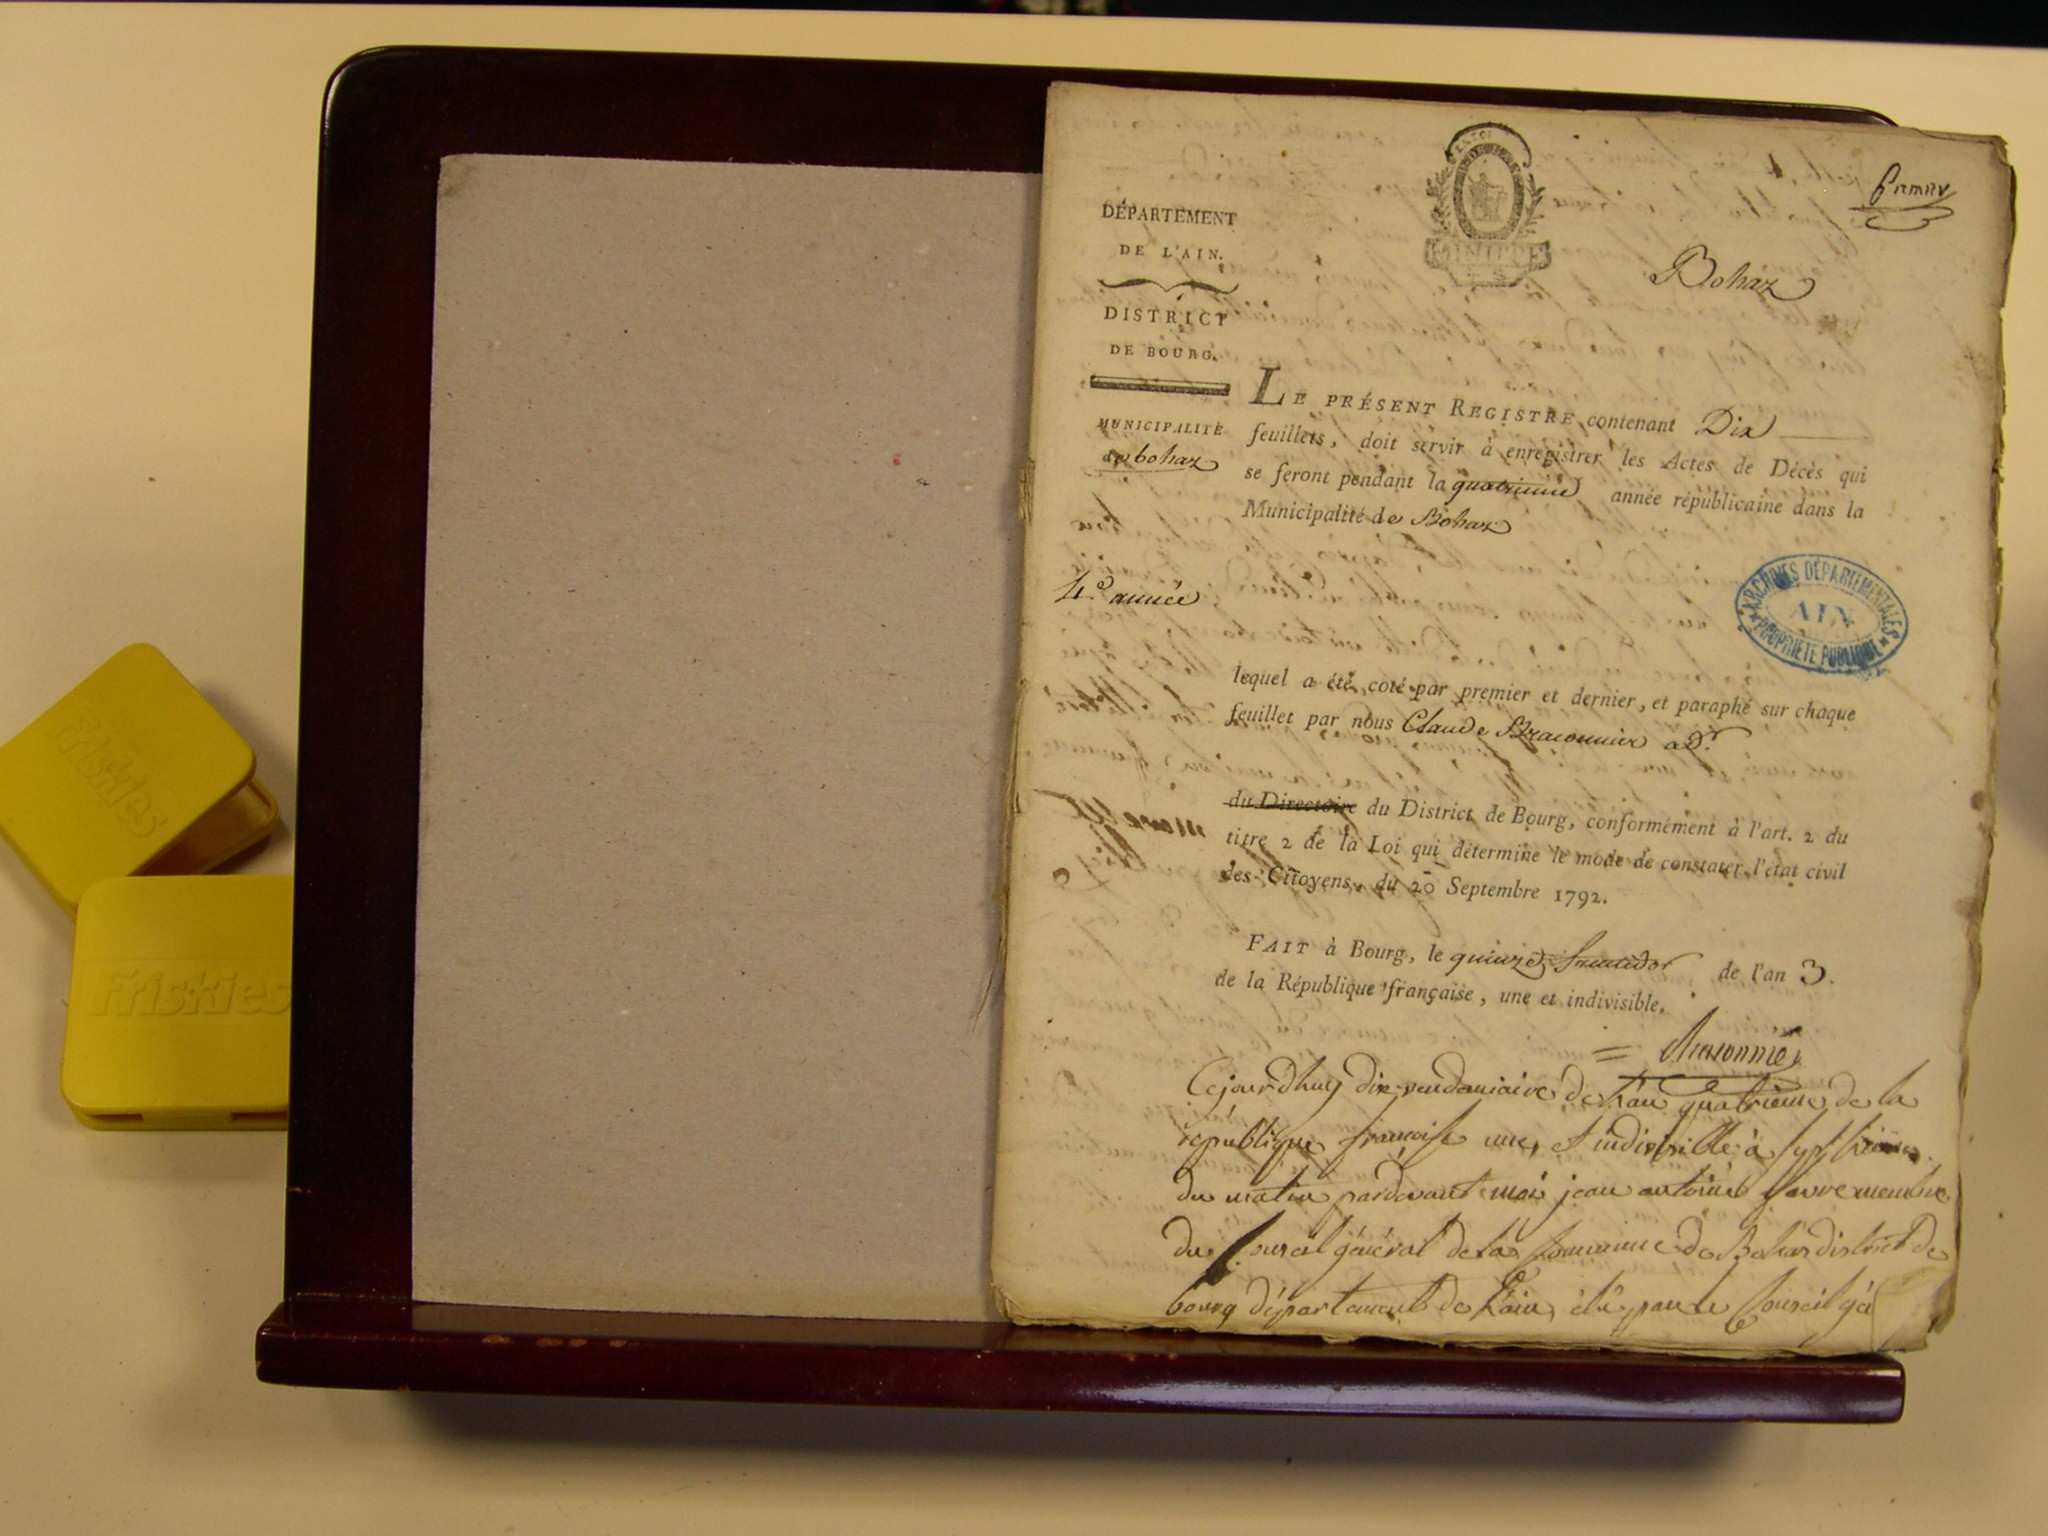 Friskies
Friskies
DÉPARTEMENT
DE L'AIN.
DISTRICT
DE BOURG.
MUNICIPALITÉ
de bohaz
4.e année
Bohaz
LE PRÉSENT REGISTRE contenant Dix
feuillets, doit servir à enregistrer les Actes de Décès qui
se feront pendant la quatrieme année républicaine dans la
Municipalité de Bohaz
ARCHIVES DÉPARTEMENTALES
AIN
PROPRIÉTÉ PUBLIQUE
lequel a été coté par premier et dernier, et paraphé sur chaque
feuillet par nous Claude Braconnier ad.r
du Directoire du District de Bourg, conformément à l'art. 2 du
titre 2 de la Loi qui détermine le mode de constater l'état civil
des Citoyens, du 20 Septembre 1792.
FAIT à Bourg, le quinze fructidor de l'an 3.
de la République française, une et indivisible.
Cejourdhuy dix vendemiaire de l'an quatrieme de la
république francoise une et indivisible à sept heures
du matin pardevant moi jean antoine favre membre
du Conseil général de la Commune de Bohaz district de
bourg département de l'ain, élu par le Conseil gé